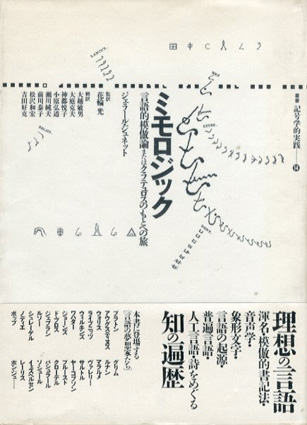 叢書 記号学的実践 14
ミモロジック
言語的模倣論またはクラテュロスのもとへの旅
ジェラール・ジュネット
監訳
花輪 光
大越敏男
大原克夫
神郡悦子
小原弘道
瀬川純夫
前川泰子
松沢和宏
吉田好克
理想の言語
渾名・模倣的書記法・
音声学・
象形文字・
言語の起源・
普遍言語・
人工言語・詩をめぐる
知の遍歴
本書に登場する
「言語の夢想家たち」
プラトン
アウグスティヌス
ウォリス
ライプニッツ
ワクター
ジョーンズ
ド・ブロス
ジェブラン
ルソー
シュレーゲル
ノディエ
ボップ
グリム
ルナン
マラルメ
ヴァレリー
サルトル
ヤーコブソン
プルースト
クローデル
バシュラール
ソシュール
イェスペルセン
レーリス
ポンジュ…